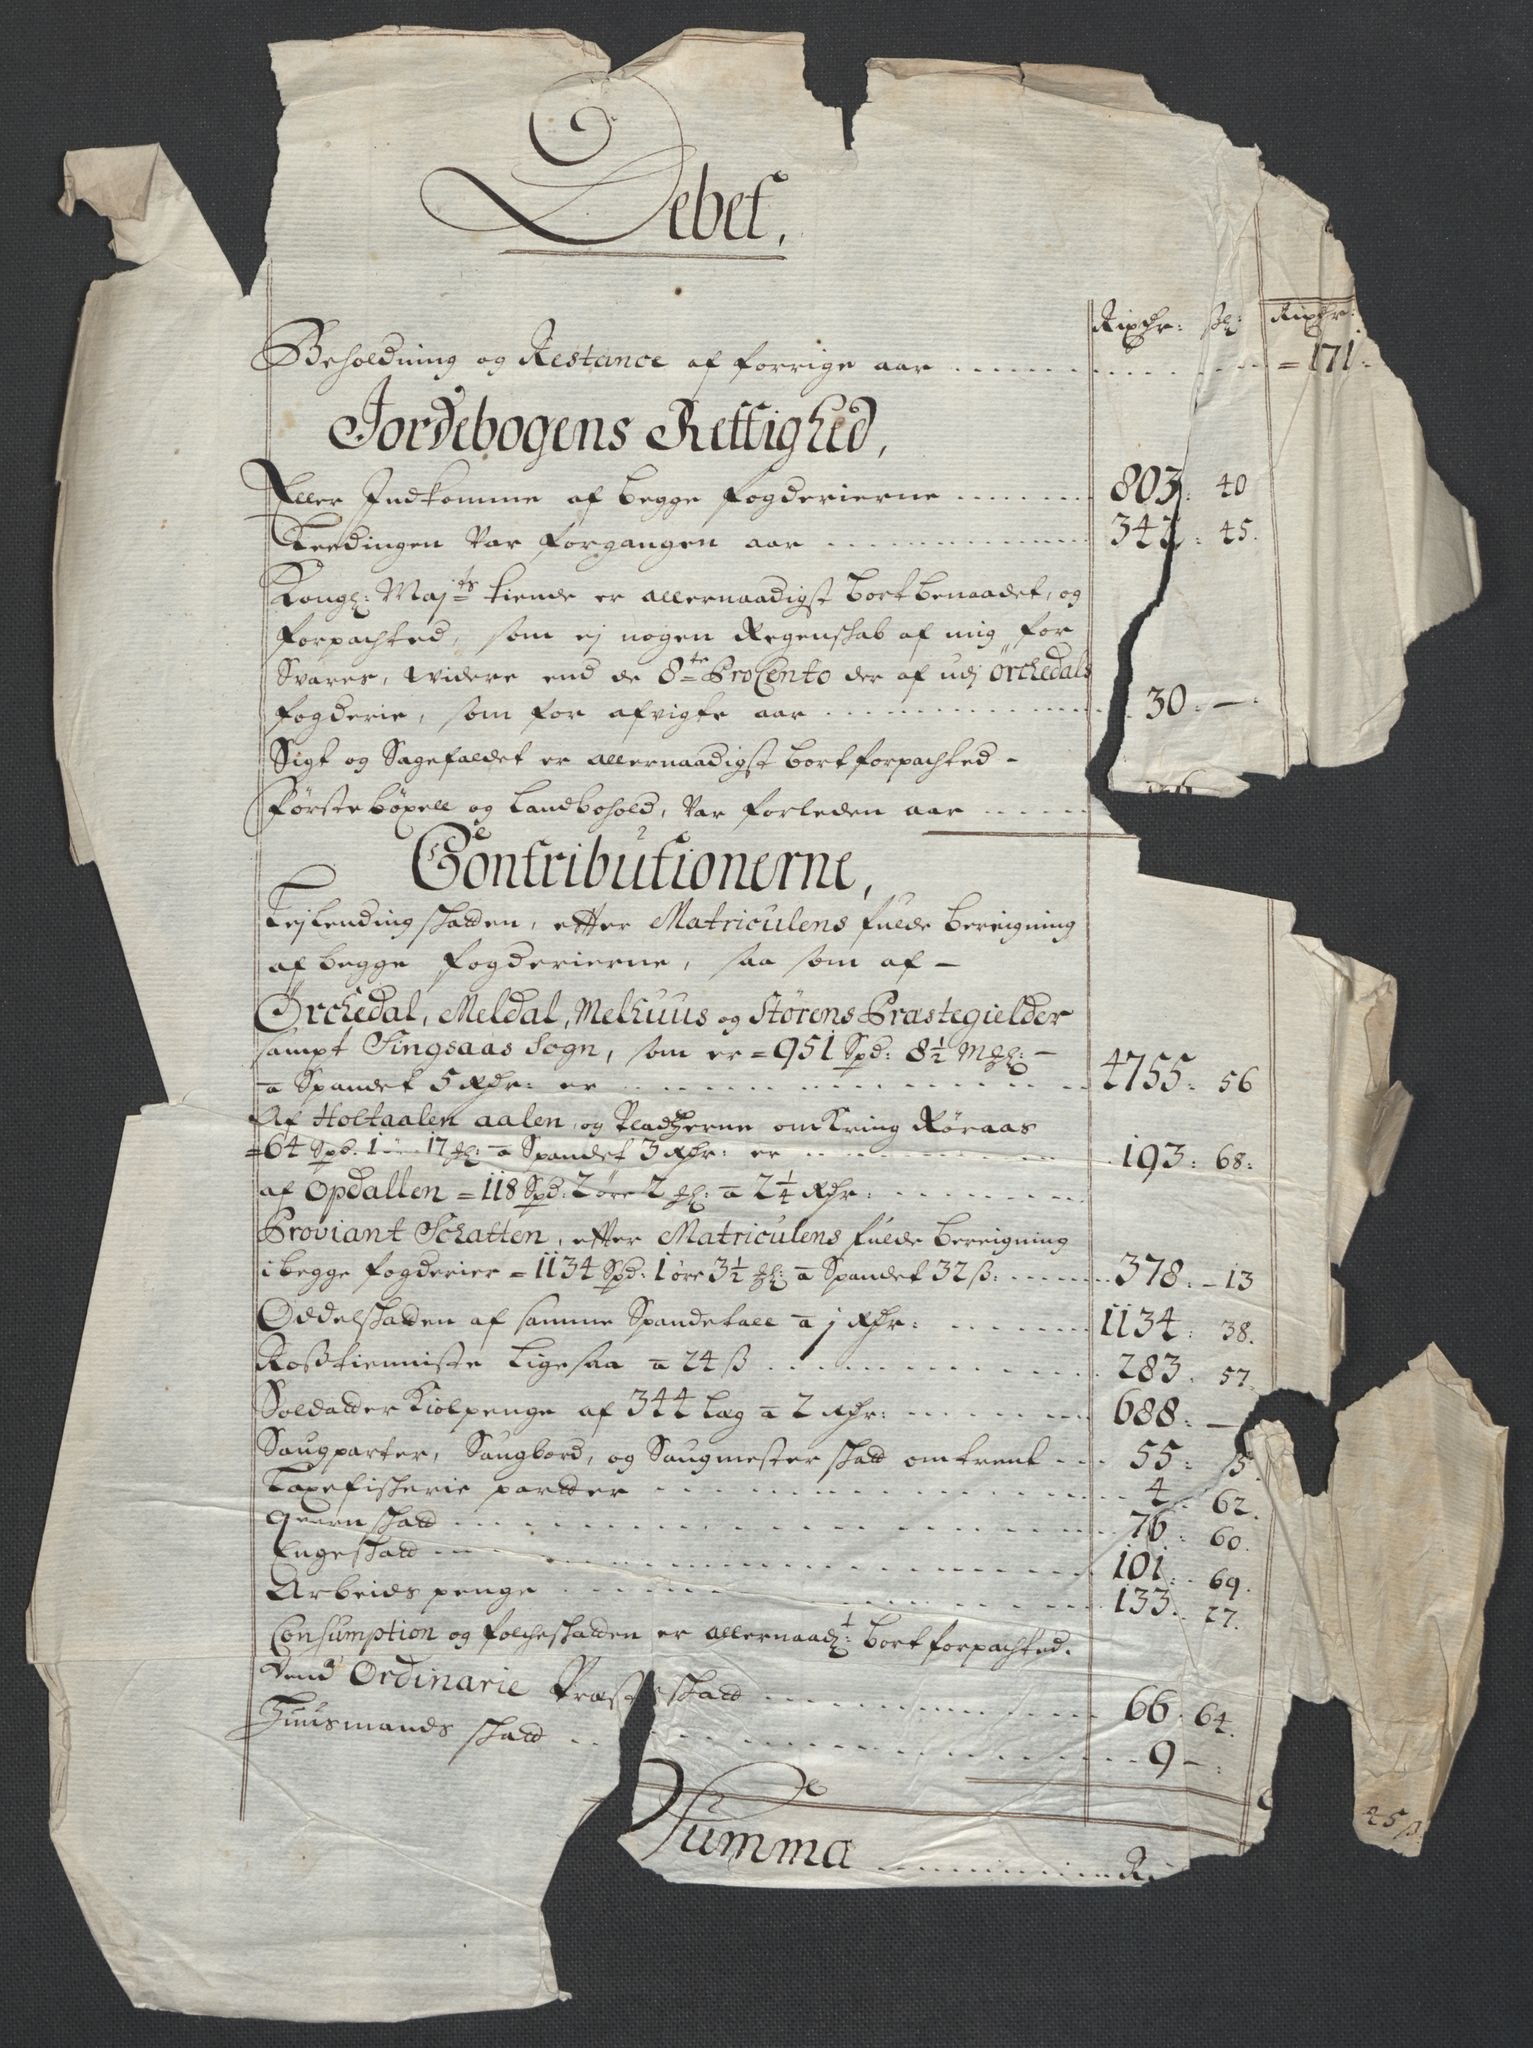 Debet.
Rixdr: sk: Rixdr:
Beholdning og Restance af forrige aar ............ = 171:
Jordebogens Rettighed,
Eller Indkomme af begge fogderierne ....... 803: 40
Leedingen Var forgangen aar ............ 342: 45.
Kongl: Majts tiende er allernaadigst bortbenaadet, og
forpachted, som ej nogen Regenskab af mig for
Svares, widere end de 8te ProCento der af udj Örchedals
fogderie, som for afvigte aar ............ 30: —
Sigt og Sagefaldet er allernaadigst bortforpachted -
Försteböxell og Landbohold, Var forleden aar .....
Contributionerne,
Lejlending skatten, efter Matriculens fulde bereigning
af begge fogderierne, saa som af -
Örchedal, Meldal, Melhuus og Störens Præstegielder
sampt Singsaas Sogn, som er = 951 Spd: 8½ Mkl: -
a Spandet 5 Rdr: er ............ 4755: 56
Af Holtaalen aalen, og Pladzerne omkring Röraas
= 64 Spd. 1 öre 17 kl: a Spandet 3 Rdr: er ............ 193: 68:
af Opdallen = 118 Spd: 2 öre 2 kl: a 2¼ Rdr: ........
Proviant Schatten, efter Matriculens fulde bereigning
i begge fogderier = 1134 Spd: 1 öre 3½ kl: a Spandet 32 ß: ...... 378: - 13
Oddelskatten af samme Spandetall a 1 Rdr: ...... 1134: 38.
Roßtienniste ligesaa a 24 ß ............ 283. 57.
Soldatter Kiolpenge af 344 Læg a 2 Rdr: ........ 688. —
Saugparter, Saugbord, og Saugmester skatt omtrent ... 55: 5.
Laxefiskerie partter ............ 4. 62.
Qvern skatt ............ 76. 60.
Engeskatt ............ 101. 69.
Arbeids penge ............ 133. 27.
Consumption og folcheskatten er allernaadl: bortforpachted.
Dend Ordinarie Præsteskatt ............ 66. 64.
Huusmands skatt ............ 9 - :
Summa ............ R
45 ß